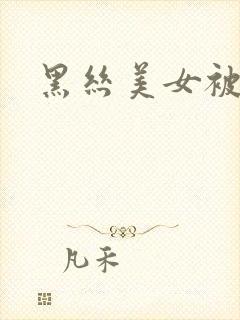 黑丝美女被
凡禾